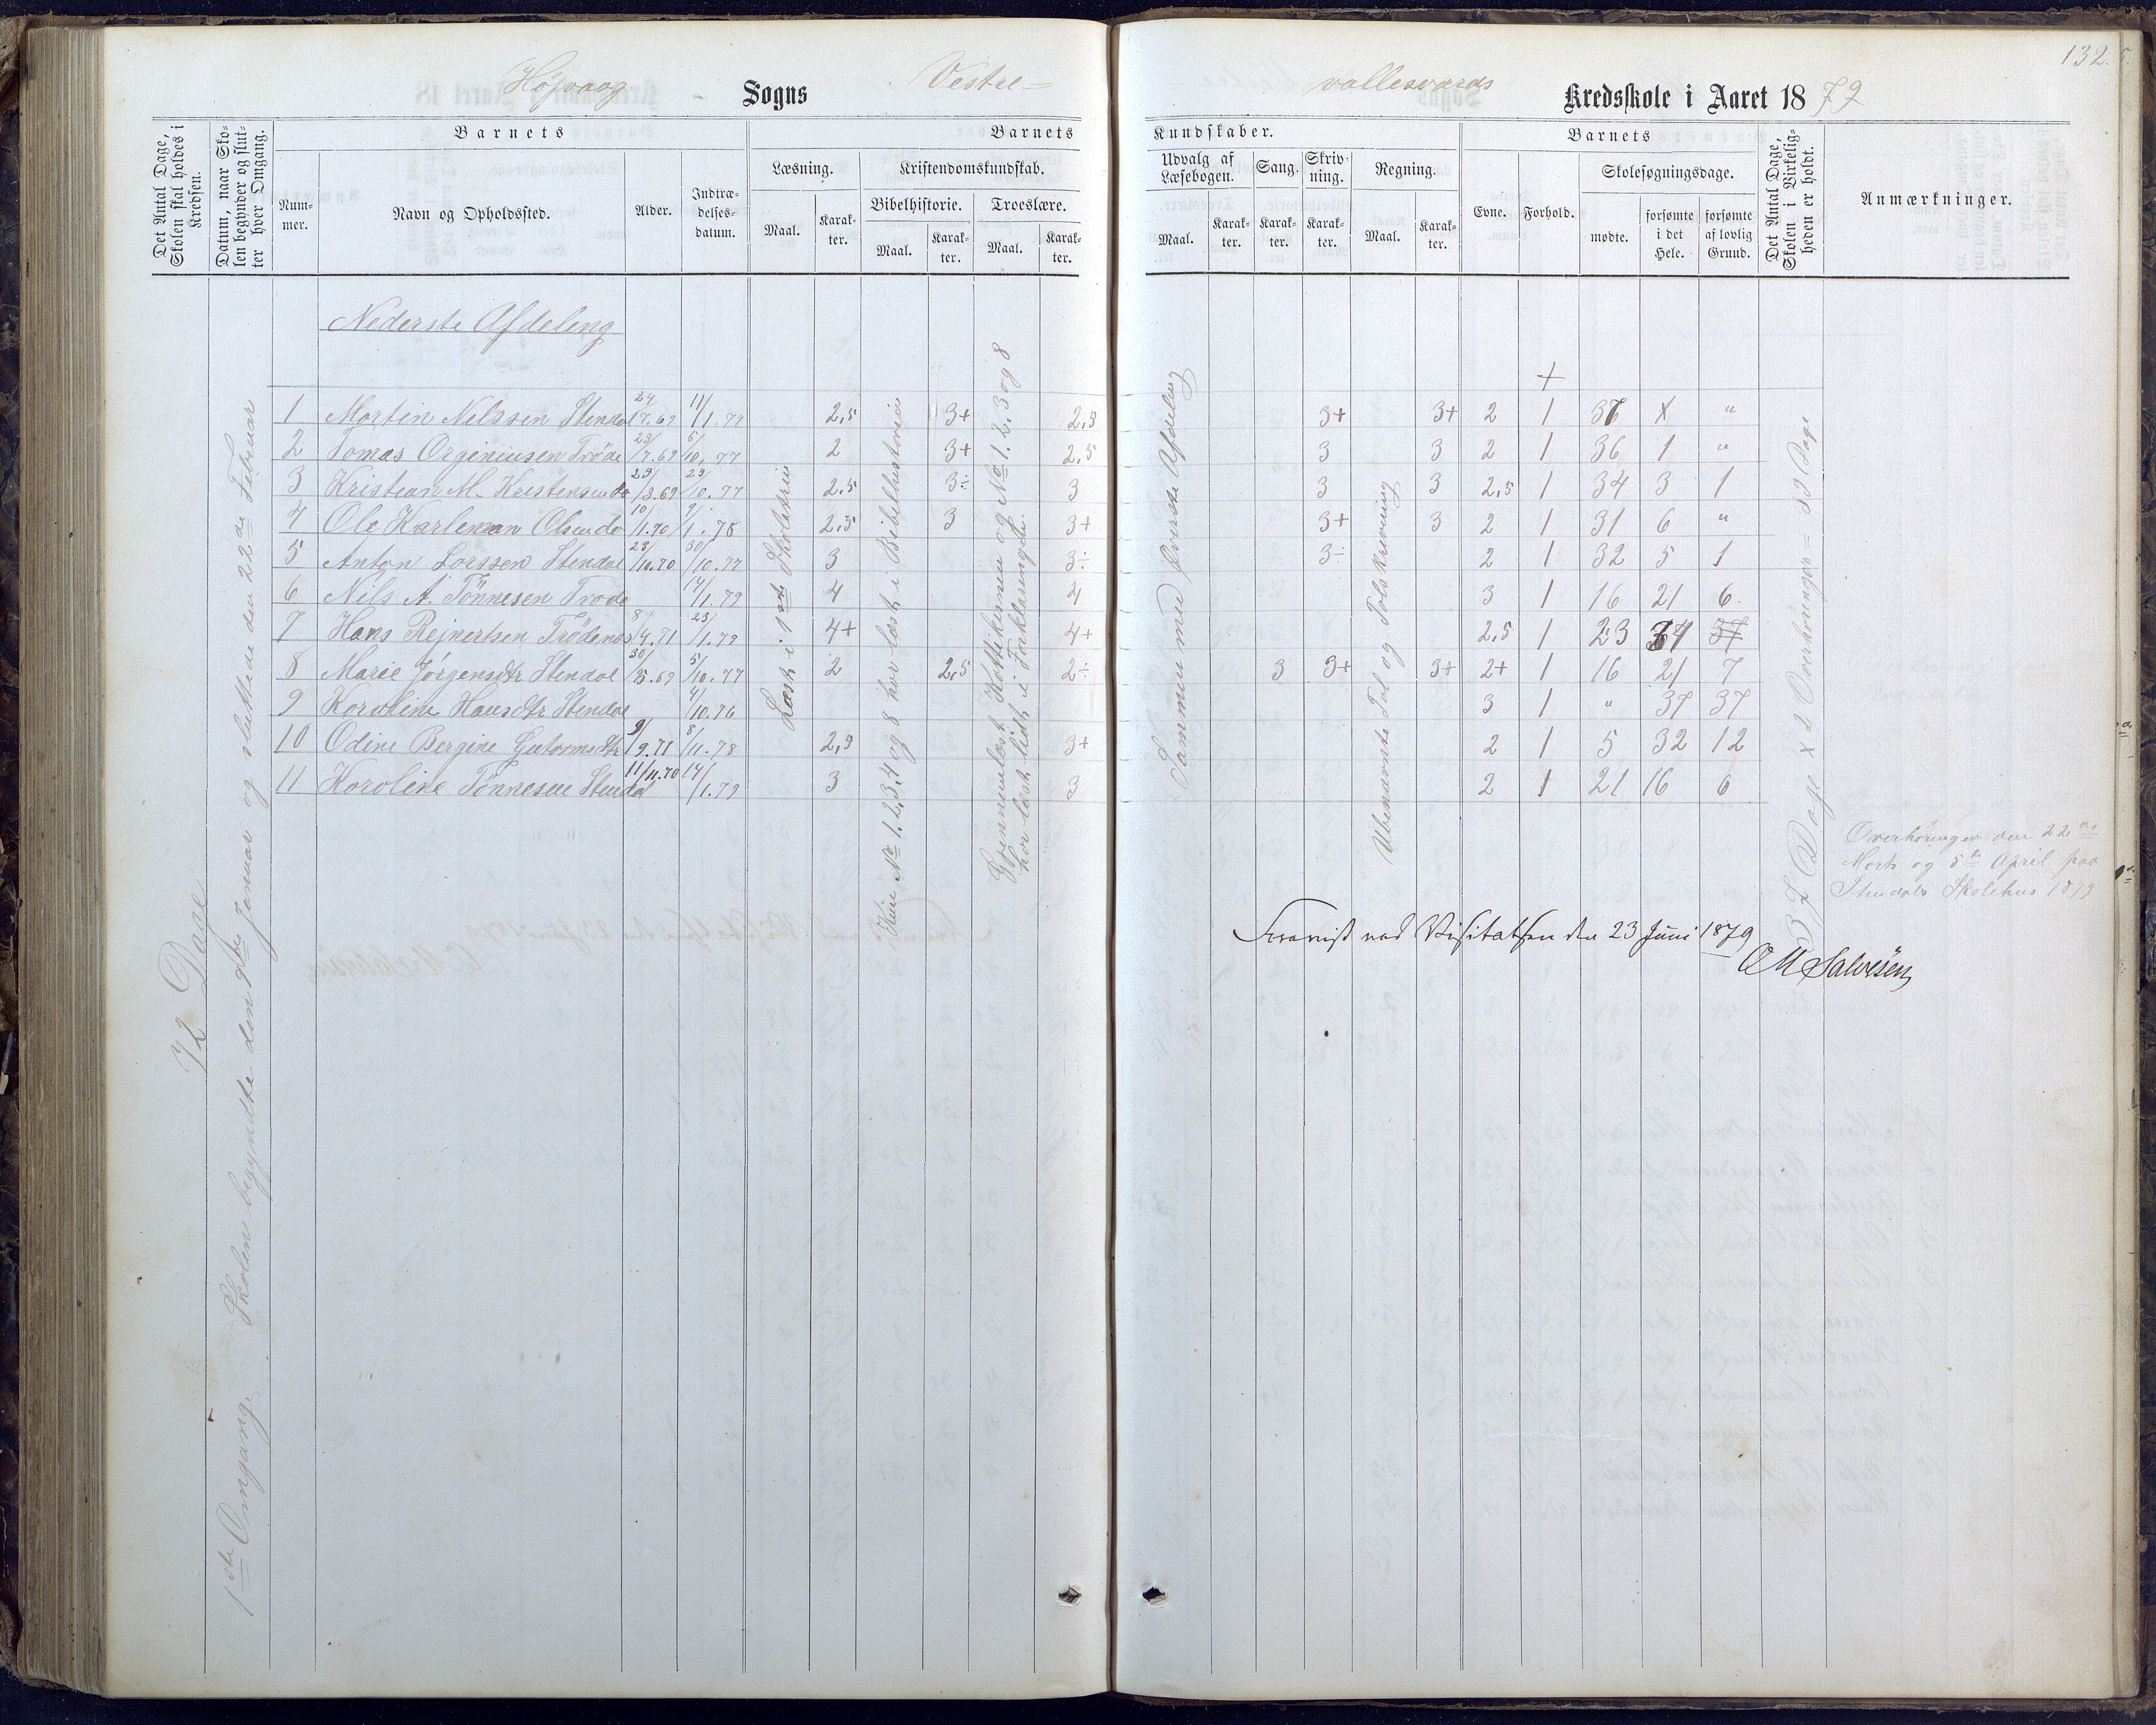 132.
Höjvaag Sogns Vestre= vallesværds Kredsskole i Aaret 1879
Det Antal Dage, Skolen skal holdes i Kredsen.
Datum, naar Skolen begynder og slutter hver Omgang.
Barnets
Nummer.
Navn og Opholdssted.
Alder.
Indtrædelsesdatum.
Barnets
Læsning.
Maal.
Karakter.
Kristendomskundskab.
Bibelhistorie.
Maal.
Karakter.
Troeslære.
Maal.
Karakter.
Kundskaber.
Udvalg af Læsebogen.
Maal.
Karakter.
Sang.
Karakter.
Skrivning.
Karakter.
Regning.
Maal.
Karakter.
Barnets
Evne.
Forhold.
Skolesøgningsdage.
mødte.
forsømte i det Hele.
forsømte af lovlig Grund.
Det Antal Dage, Skolen i Virkeligheden er holdt.
Anmærkninger.
72 Dage
1ste Omgang. Skolen begyndte den Januar og sluttede den 22de Februar
Nederste Afdeling
Læst i 1ste Skoletrin
Kun No 1.2.3.4 og 8 har læst i Bibelhistorie
Gjennemlæst og No 1.2.3 og 8
har læst lidt i Forklaringen.
Sammen med øverste Afdeling
Ubenævnte Tal og Talskrivning
+
1 Martin Nelssen Stendal 24/7.69 11/1.79 2,5 3+ 2,5 3+ 3+ 2 1 37 "
2 Tomas Orginiusen Trøde 23/7.69 5/10.77 2 3+ 2,5 3 3 2 1 36 1 "
3 Kristian M. Kristensen do 23/3.69 29/10.77 2,5 3÷ 3 3 3 2,5 1 34 3 1
4 Ole Karleman Olsen do 10/1.70 9/1.78 2,5 3 3+ 3+ 3 2 1 31 6 "
5 Anton Larssen Stendal 23/10.70 30/10.77 3 3÷ 3÷ 2 1 32 5 1
6 Nils A. Tönnesen Trøde 14/1.79 4 4 3 1 16 21 6
7 Hans Rejnertsen Trødenes 8/4.71 23/1.79 4+ 4+ 2,5 1 23 37
8 Marie Jørgensdtr Stendal 30/5.69 5/10.77 2 2,5 2÷ 3 3+ 3+ 2+ 1 16 21 7
9 Karoline Hansdtr Stendal 4/10.76 3 1 " 37 37
10 Odine Bergine Gutormsdtr 9/9.71 8/11.78 2,5 3+ 2 1 5 32 12
11 Karoline Tönnesen Stendal 11/11.70 14/1.79 3 3 2 1 21 16 6
37 Dage + 2 Overhøringer = 39 Dage
Overhøringer den 22de
Marts og 5te April paa
Stendals Skolehus 1879
Fremvist ved Visitatsen den 23 Juni 1879
OM Salvesen